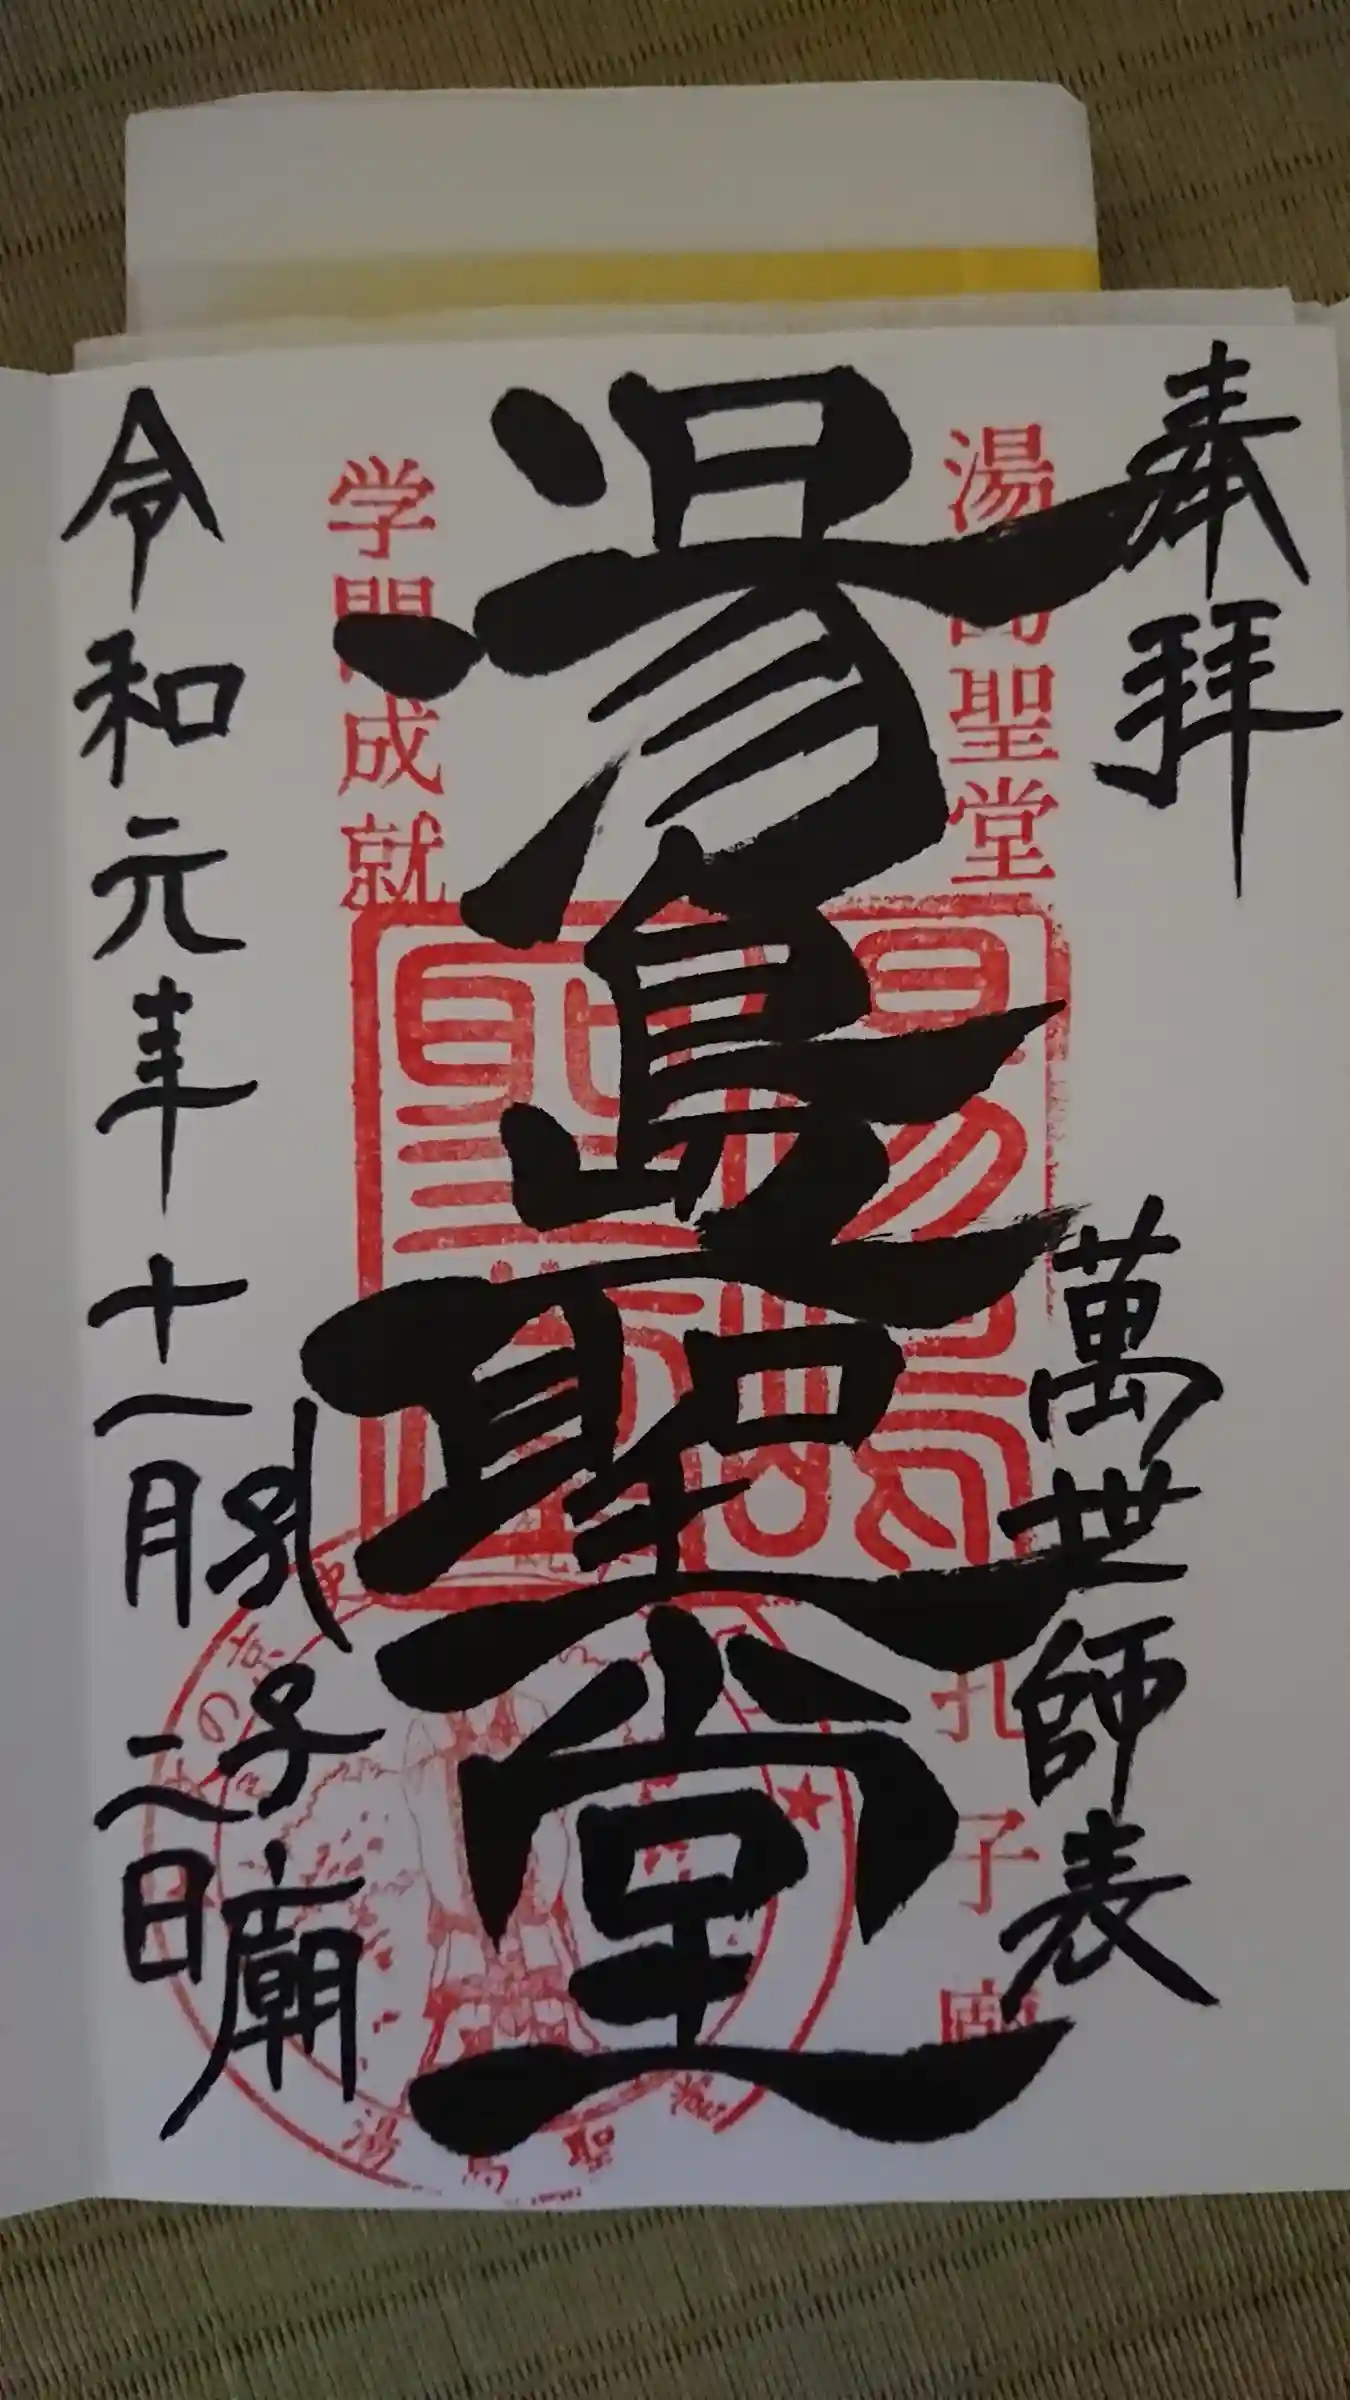 奉拝
萬世師表
湯島聖堂
孔子廟
湯島聖堂
学問成就
孔子廟
令和元年十一月二日
湯島聖